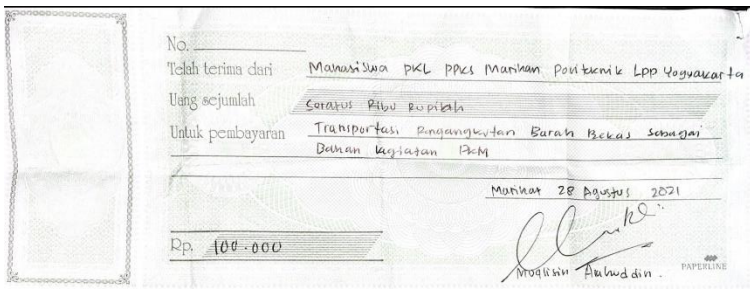 No.
Telah terima dari Mahasiswa PKL PPKS Marihan Politeknik LPP Yogyakarta
Uang sejumlah Seratus Ribu Rupiah
Untuk pembayaran Transportasi Pengangkutan Barah Bekas Sebagai
Bahan kegiatan PKM
Marihat 28 Agustus 2021
Rp. 100.000
Muqlisin
PAPERLINE